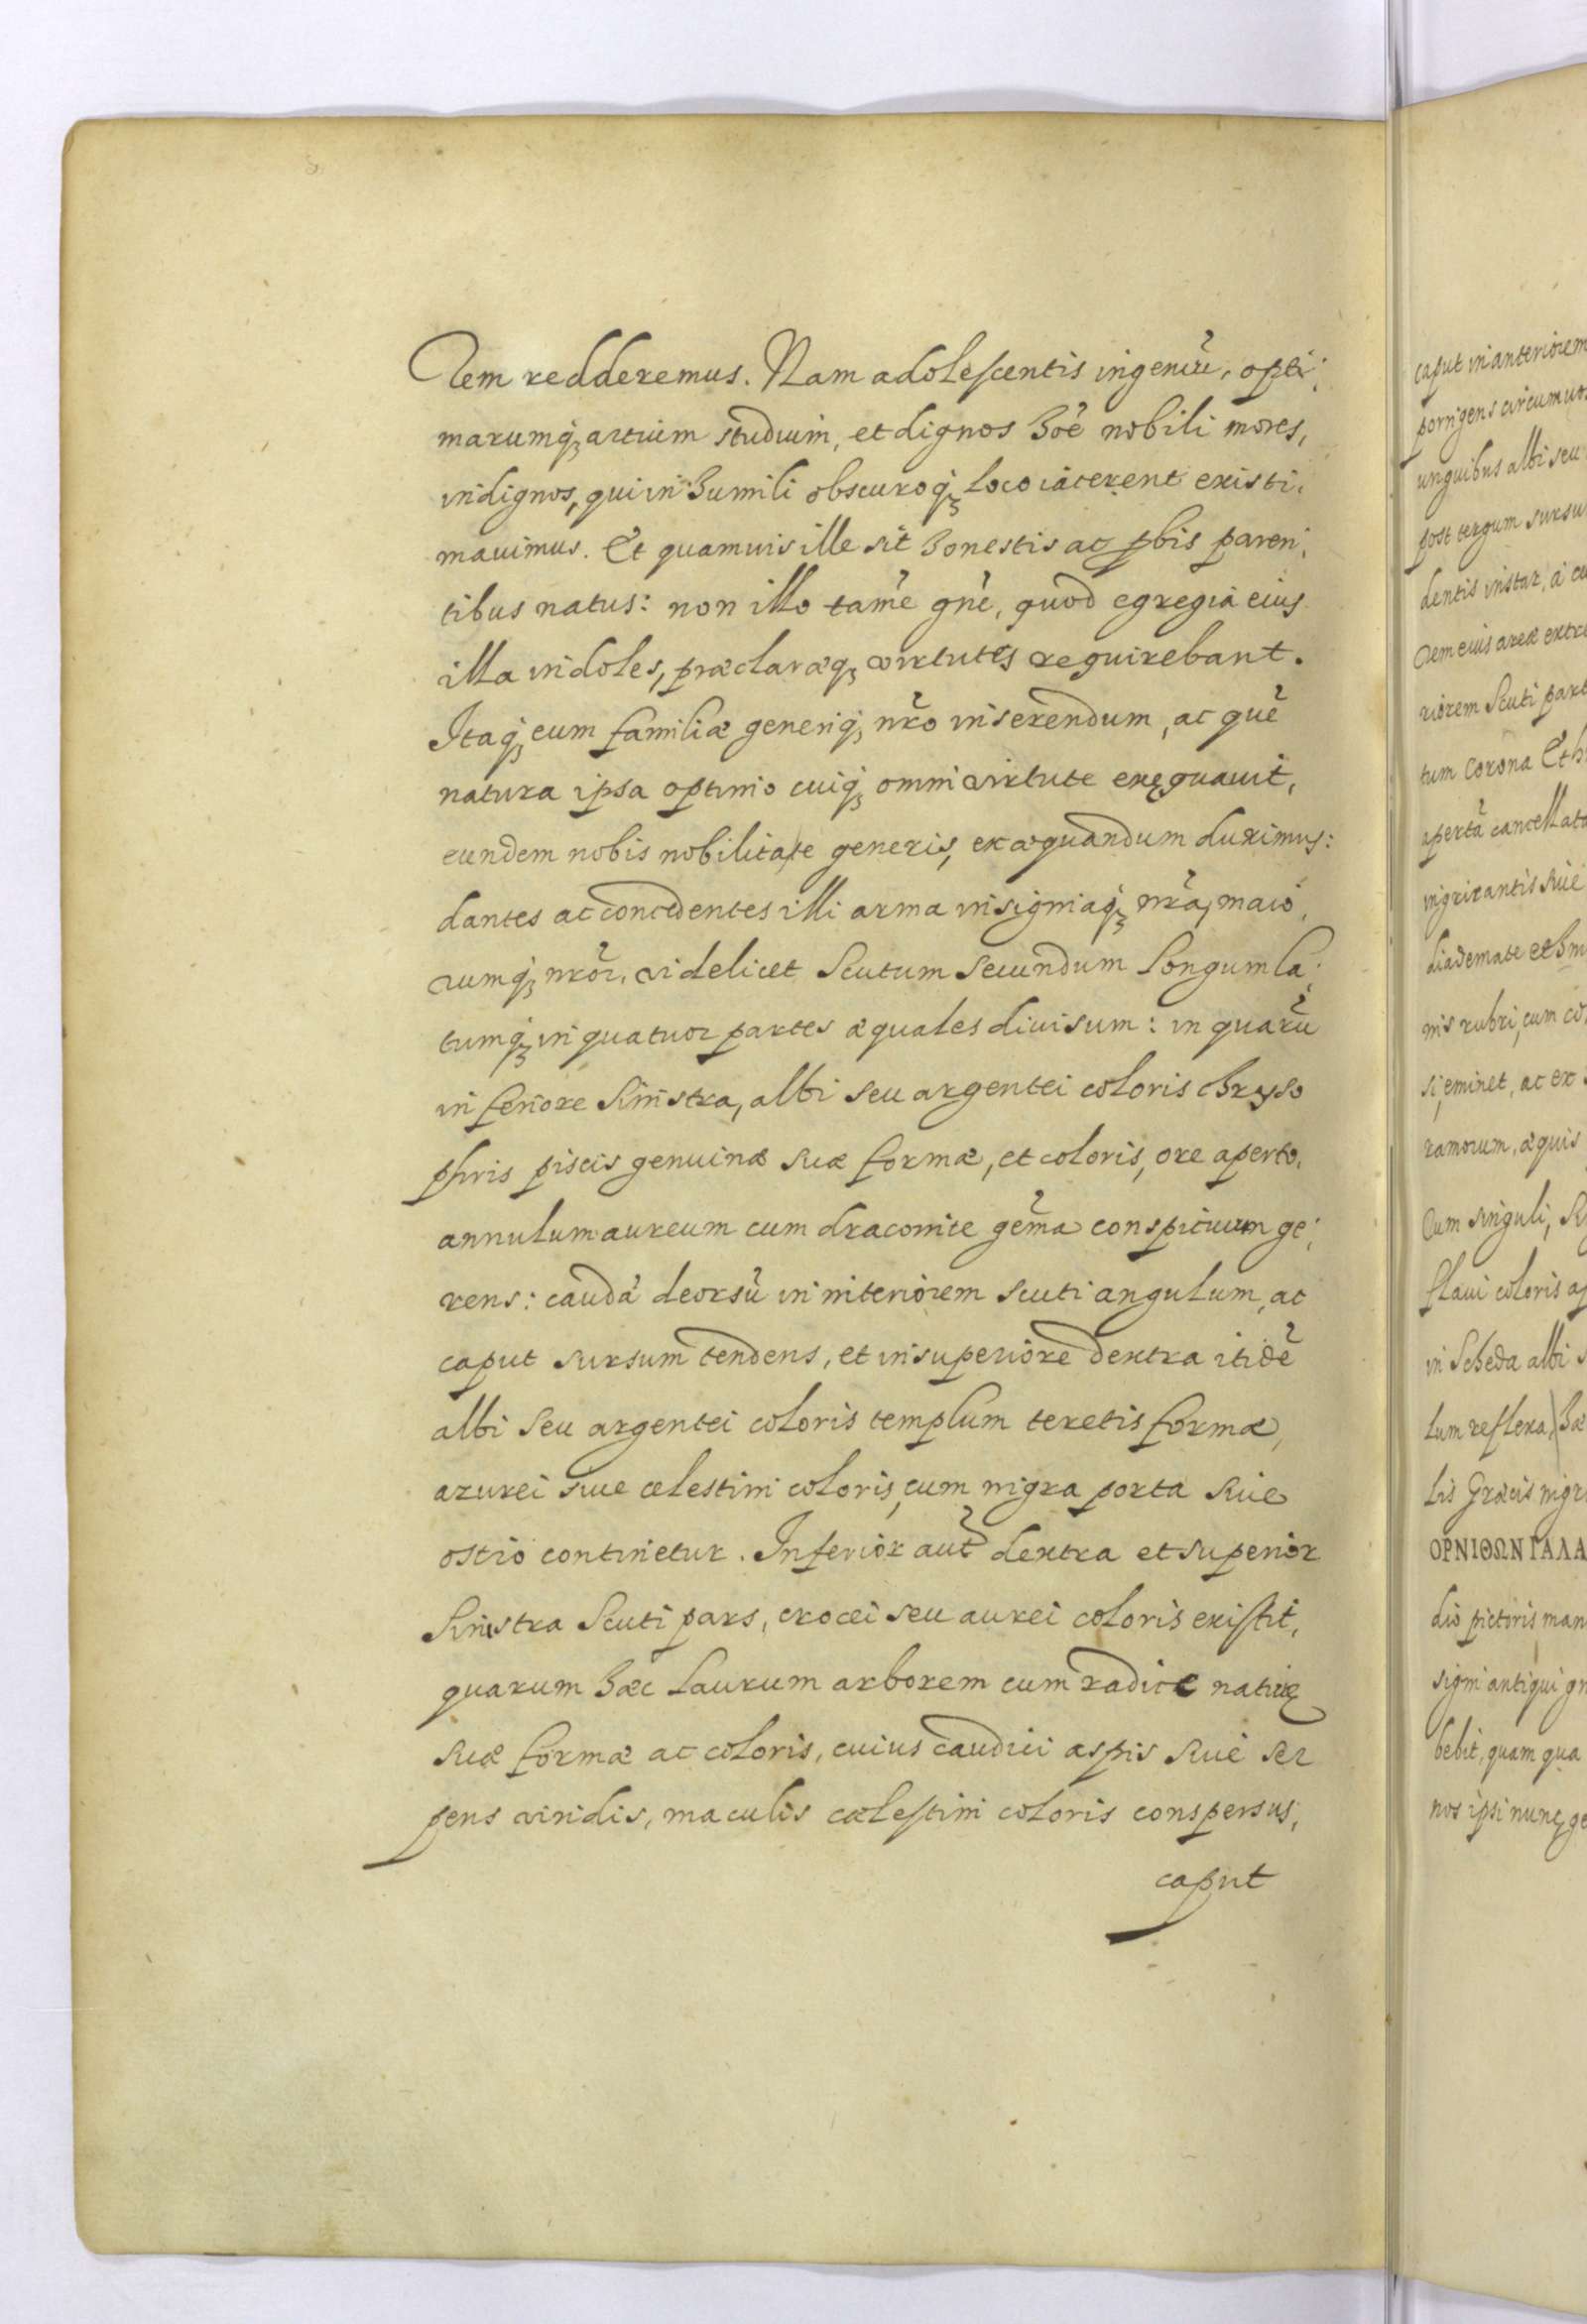 rem redderemus. Nam adolescentis ingeniũ, opti:
marumq́ꝫ artium studium, et dignos hoı̃e nobili mores,
indignos, qui in humili obscuroq́ꝫ loco iacerent existi:
mauimus. Et quamuis ille sit honestis ac ꝓbis paren:
tibus natus: non illo tamẽ gñe, quod egregia eius
illa indoles, præclaræq́ꝫ virtutes requirebant.
Itaq́ꝫ eum familiæ generiq́ꝫ nr̃o inserendum, ac quẽ
natura ipsa optimo cuiq́ꝫ omni virtute exęquauit,
eundem nobis nobilitate generis, exæquandum duximus:
dantes ac concedentes illi arma insigniaq́ꝫ nr̃a, maio:
rumq́ꝫ nr̃or, videlicet Scutum secundum longum la:
tumq́ꝫ in quatuor partes æquales diuisum: in quarũ
inferiore sinistra, albi seu argentei coloris chryso
phris piscis genuinæ suæ formæ, et coloris, ore aperto,
annulum aureum cum draconite gem̃a conspicuum ge:
rens: caudã deorsũ in interiorem scuti angulum, ac
caput sursum tendens, et in superiore dextra itidẽ
albi seu argentei coloris templum teretis formæ,
azurei siue cælestini coloris, cum nigra porta siue
ostio continetur. Inferior aut̃ dextra et superior
sinistra Scuti pars, crocei seu aurei coloris existit,
quarum hæc laurum arborem cum radice natiuę
suæ formæ ac coloris, cuius caudici aspis siue ser
pens viridis, maculis cœlestini coloris conspersus,
caput
caput in anteriorem
porrigens circumuo
unguibus albi seu
post tergum sursu
dentis instar, a cu
rem eius areæ extre
riorem Scuti part
tum corona Et h
apertã cancellato
nigricantis siue
diademate et
nis rubri, cum co
si, eminet, ac ex
ramorum, æquis
rum singuli, s
flaui coloris ap
in Scheda albi s
lum reflexa, hæ
lis Græcis nigr
ΟΡΝΙΘΩΝ ΓΑΛΑ
dio pictoris man
signi antiqui gn
bebit, quam qua
nos ipsi nunc, ge